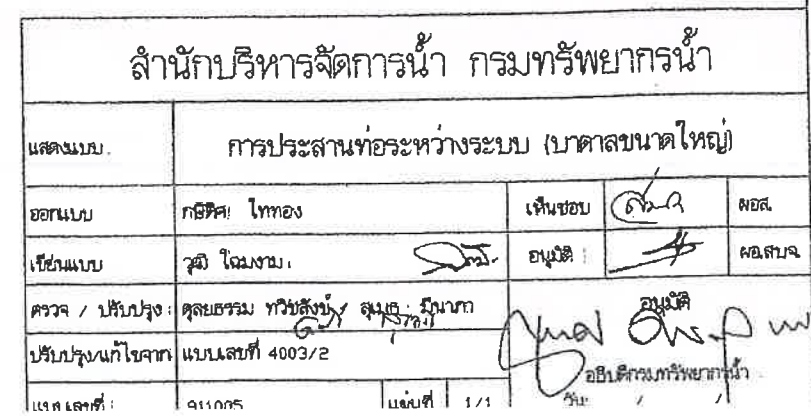 สำนักบริหารจัดการน้ำ กรมทรัพยากรน้ำ
แสดงแบบ : การประสานท่อระหว่างระบบ (บาดาลขนาดใหญ่)
ออกแบบ กษิดิศ ไททอง เห็นชอบ ผอส.
เขียนแบบ วุฒิ โฉมงาม อนุมัติ : ผอ.สบจ.
ตรวจ / ปรับปรุง : ตุลยธรรม ทวิชสังข์ / สุเมธ มีนาภา อนุมัติ
ปรับปรุง/แก้ไขจาก แบบเลขที่ 4003/2
อธิบดีกรมทรัพยากรน้ำ
แบบเลขที่ : 911005 แผ่นที่ 1/1 วัน: / /